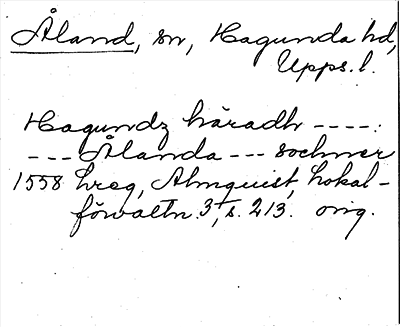 Åland, sn, Hagunda hd,
Upps. l.
Hagundz häradh ----:
--- Ålanda --- sochner
1558 hreg, Almquist, Lokal-
förvaltn. 3, s. 213. orig.